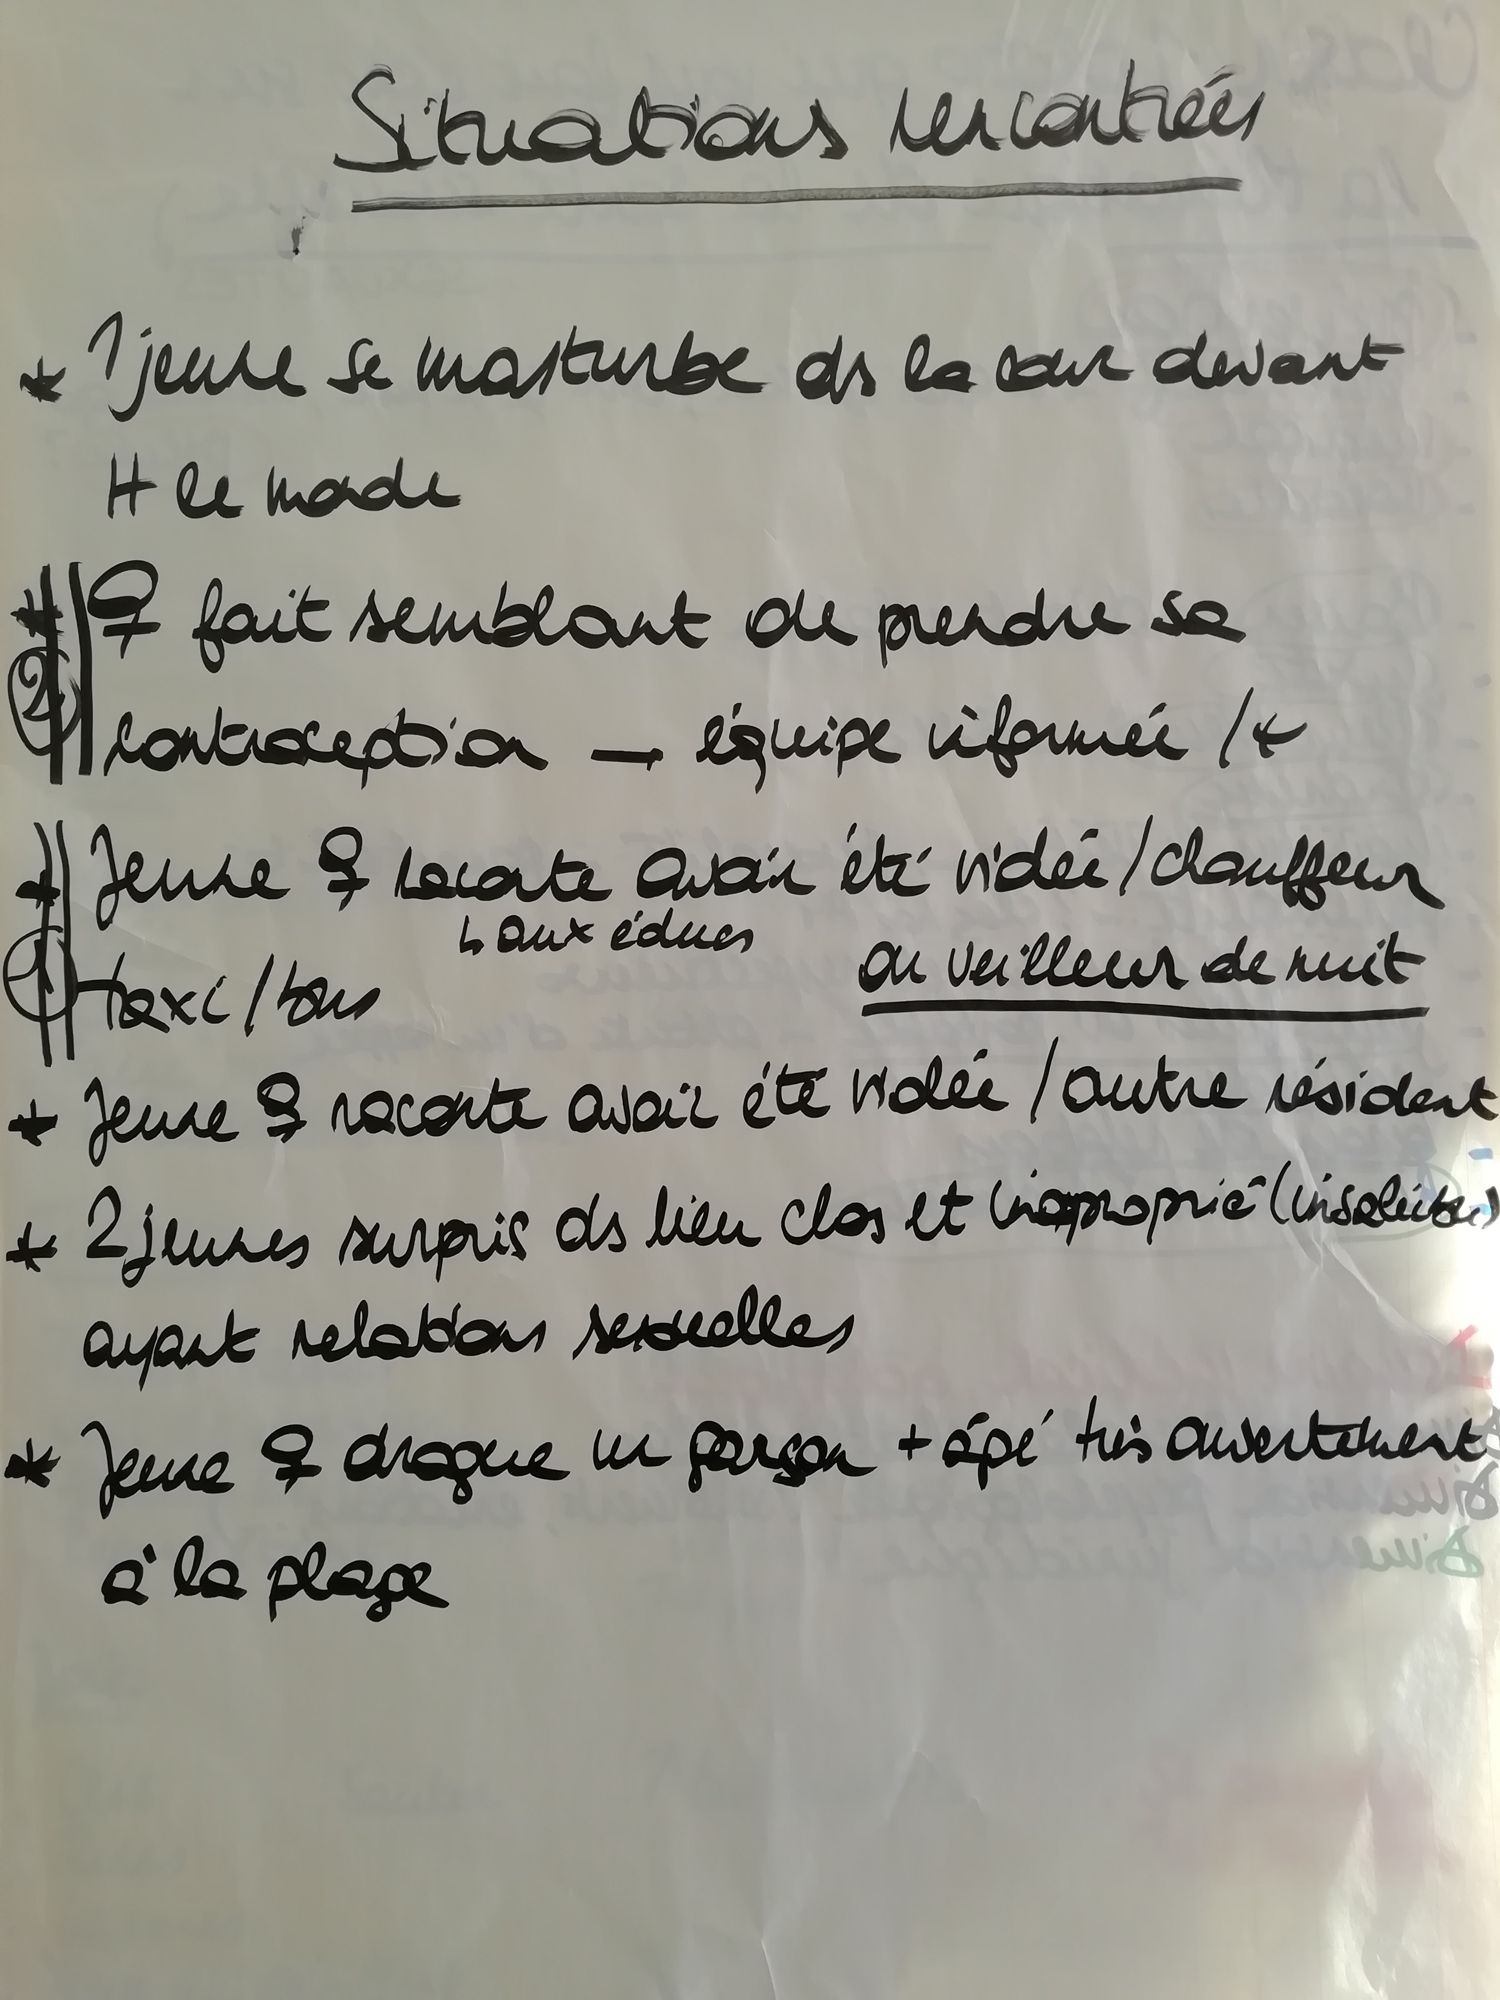 Situations rencontrées
* 1 jeune se masturbe ds la cour devant
tt le monde
* ♀ fait semblant de prendre sa
② contraception → équipe informée / +
* Jeune ♀ raconte avoir été violée / chauffeur
↳ aux éducs ou veilleur de nuit
① taxi / bus
* Jeune ♀ raconte avoir été violée / autre résident
* 2 jeunes surpris ds lieu clos et inaproprié (insalubre)
ayant relations sexuelles
* Jeune ♀ drague un garçon + âgé très ouvertement
à la plage